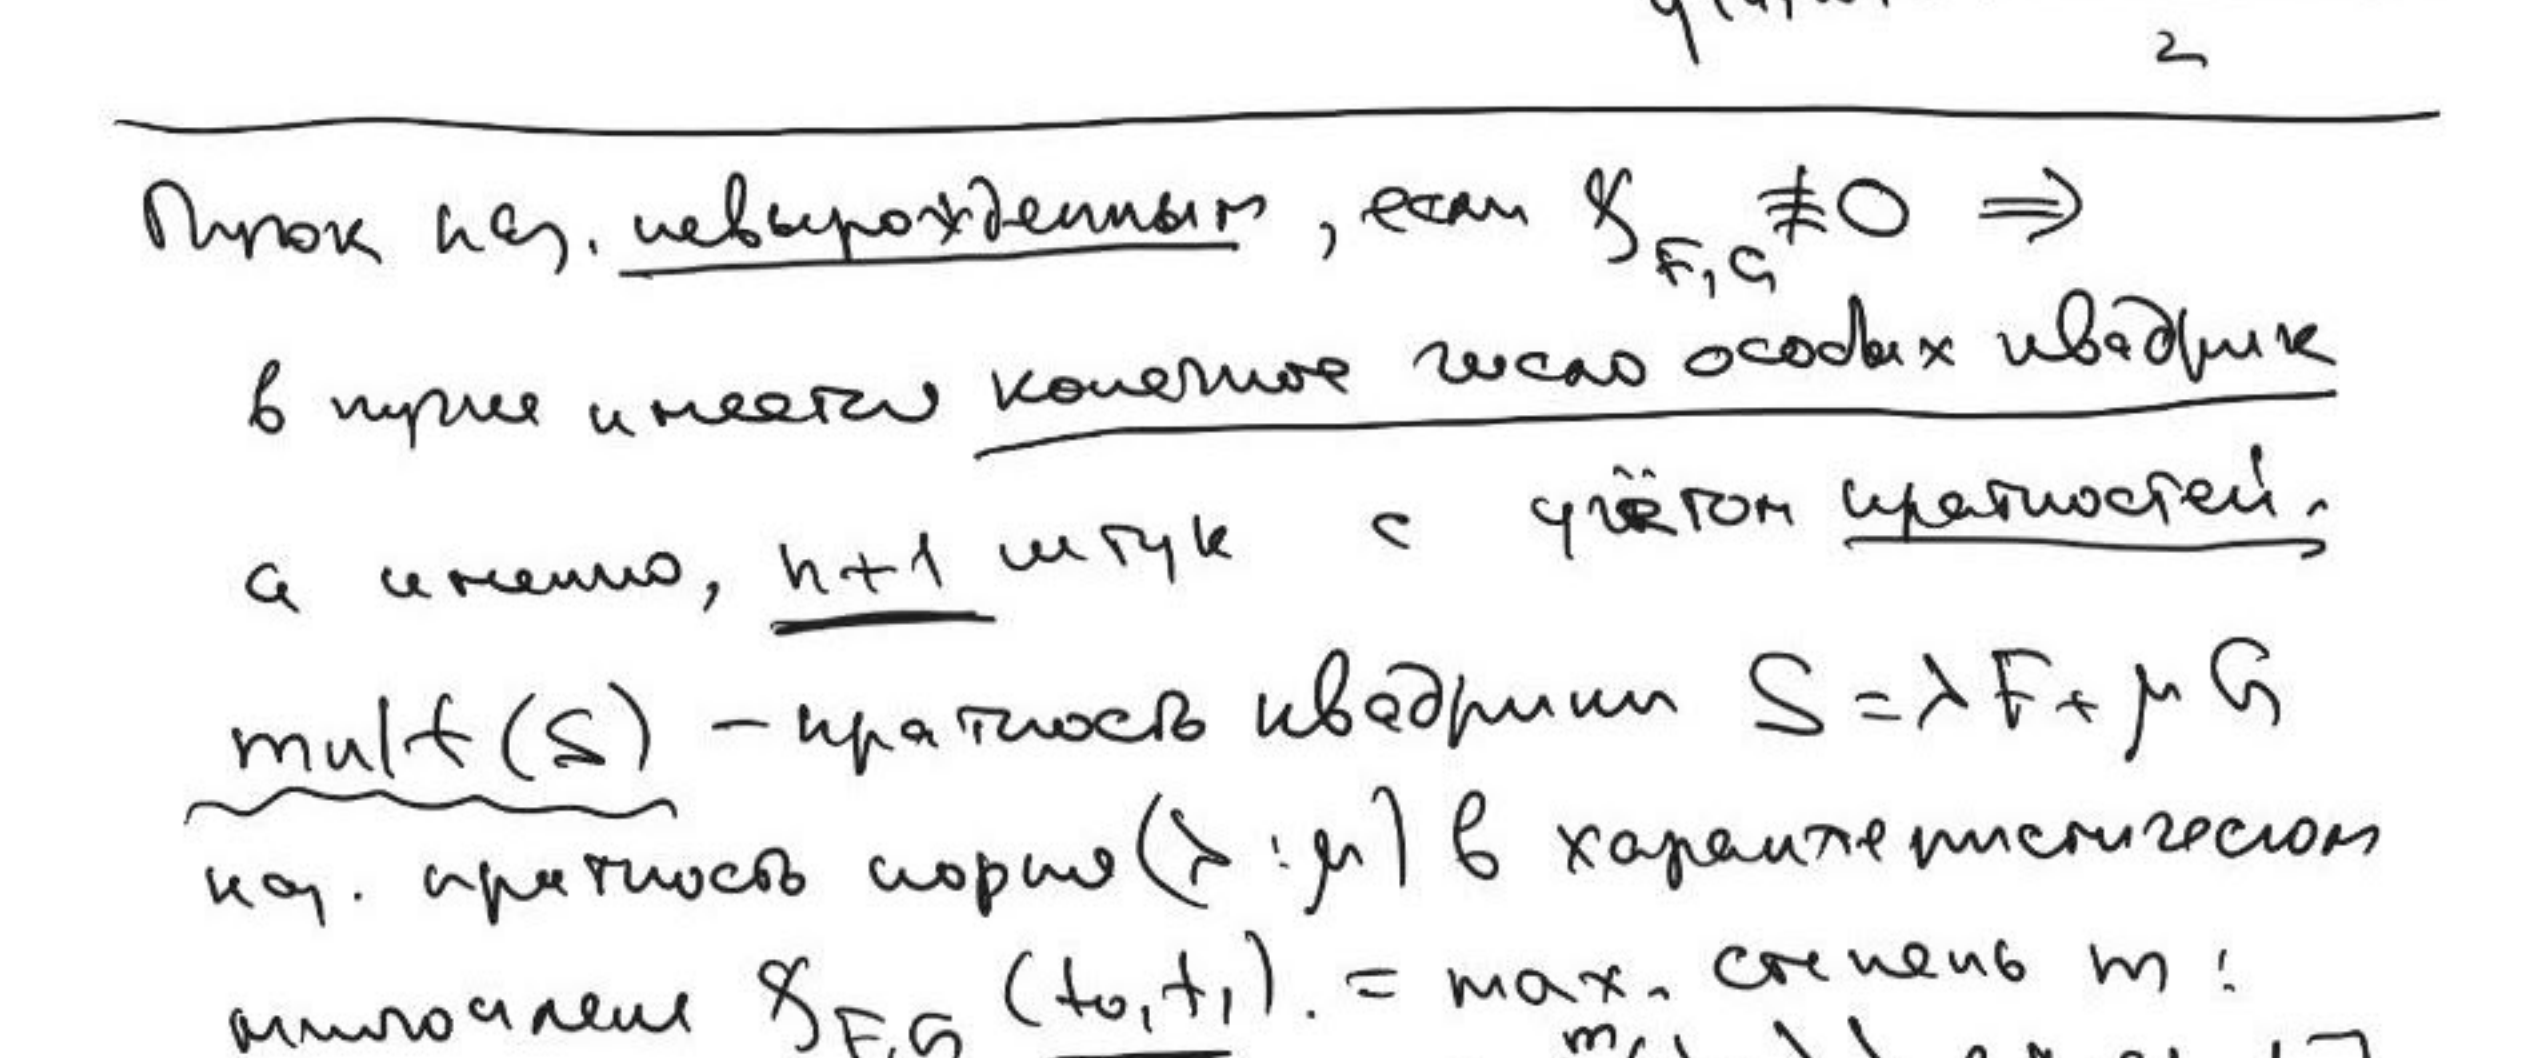 2
Пучок наз. невырожденным, если χ_{F,G} ≢ 0 ⇒
в пучке имеется конечное число особых квадрик
а именно, n+1 штук с учётом кратностей.
mult(S) – кратность квадрики S = λF + μG
наз. кратность корня (λ:μ) в характеристическом
многочлене χ_{F,G} (t₀,t₁). = max. степень m :
m